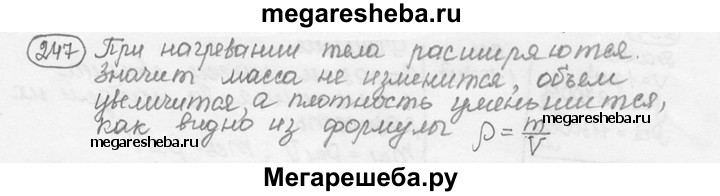 megaresheba.ru
247 При нагревании тела расширяются.
Значит масса не изменится, объем
увеличится, а плотность уменьшится,
как видно из формулы ρ = m/V
megaresheba.ru megaresheba.ru
Мегарешеба.ру